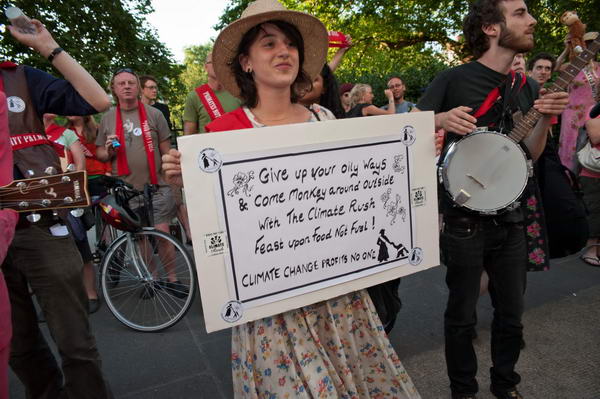 Give up your oily ways
& come Monkey around outside
with The Climate Rush
Feast upon Food Not Fuel !
CLIMATE CHANGE PROFITS NO ONE